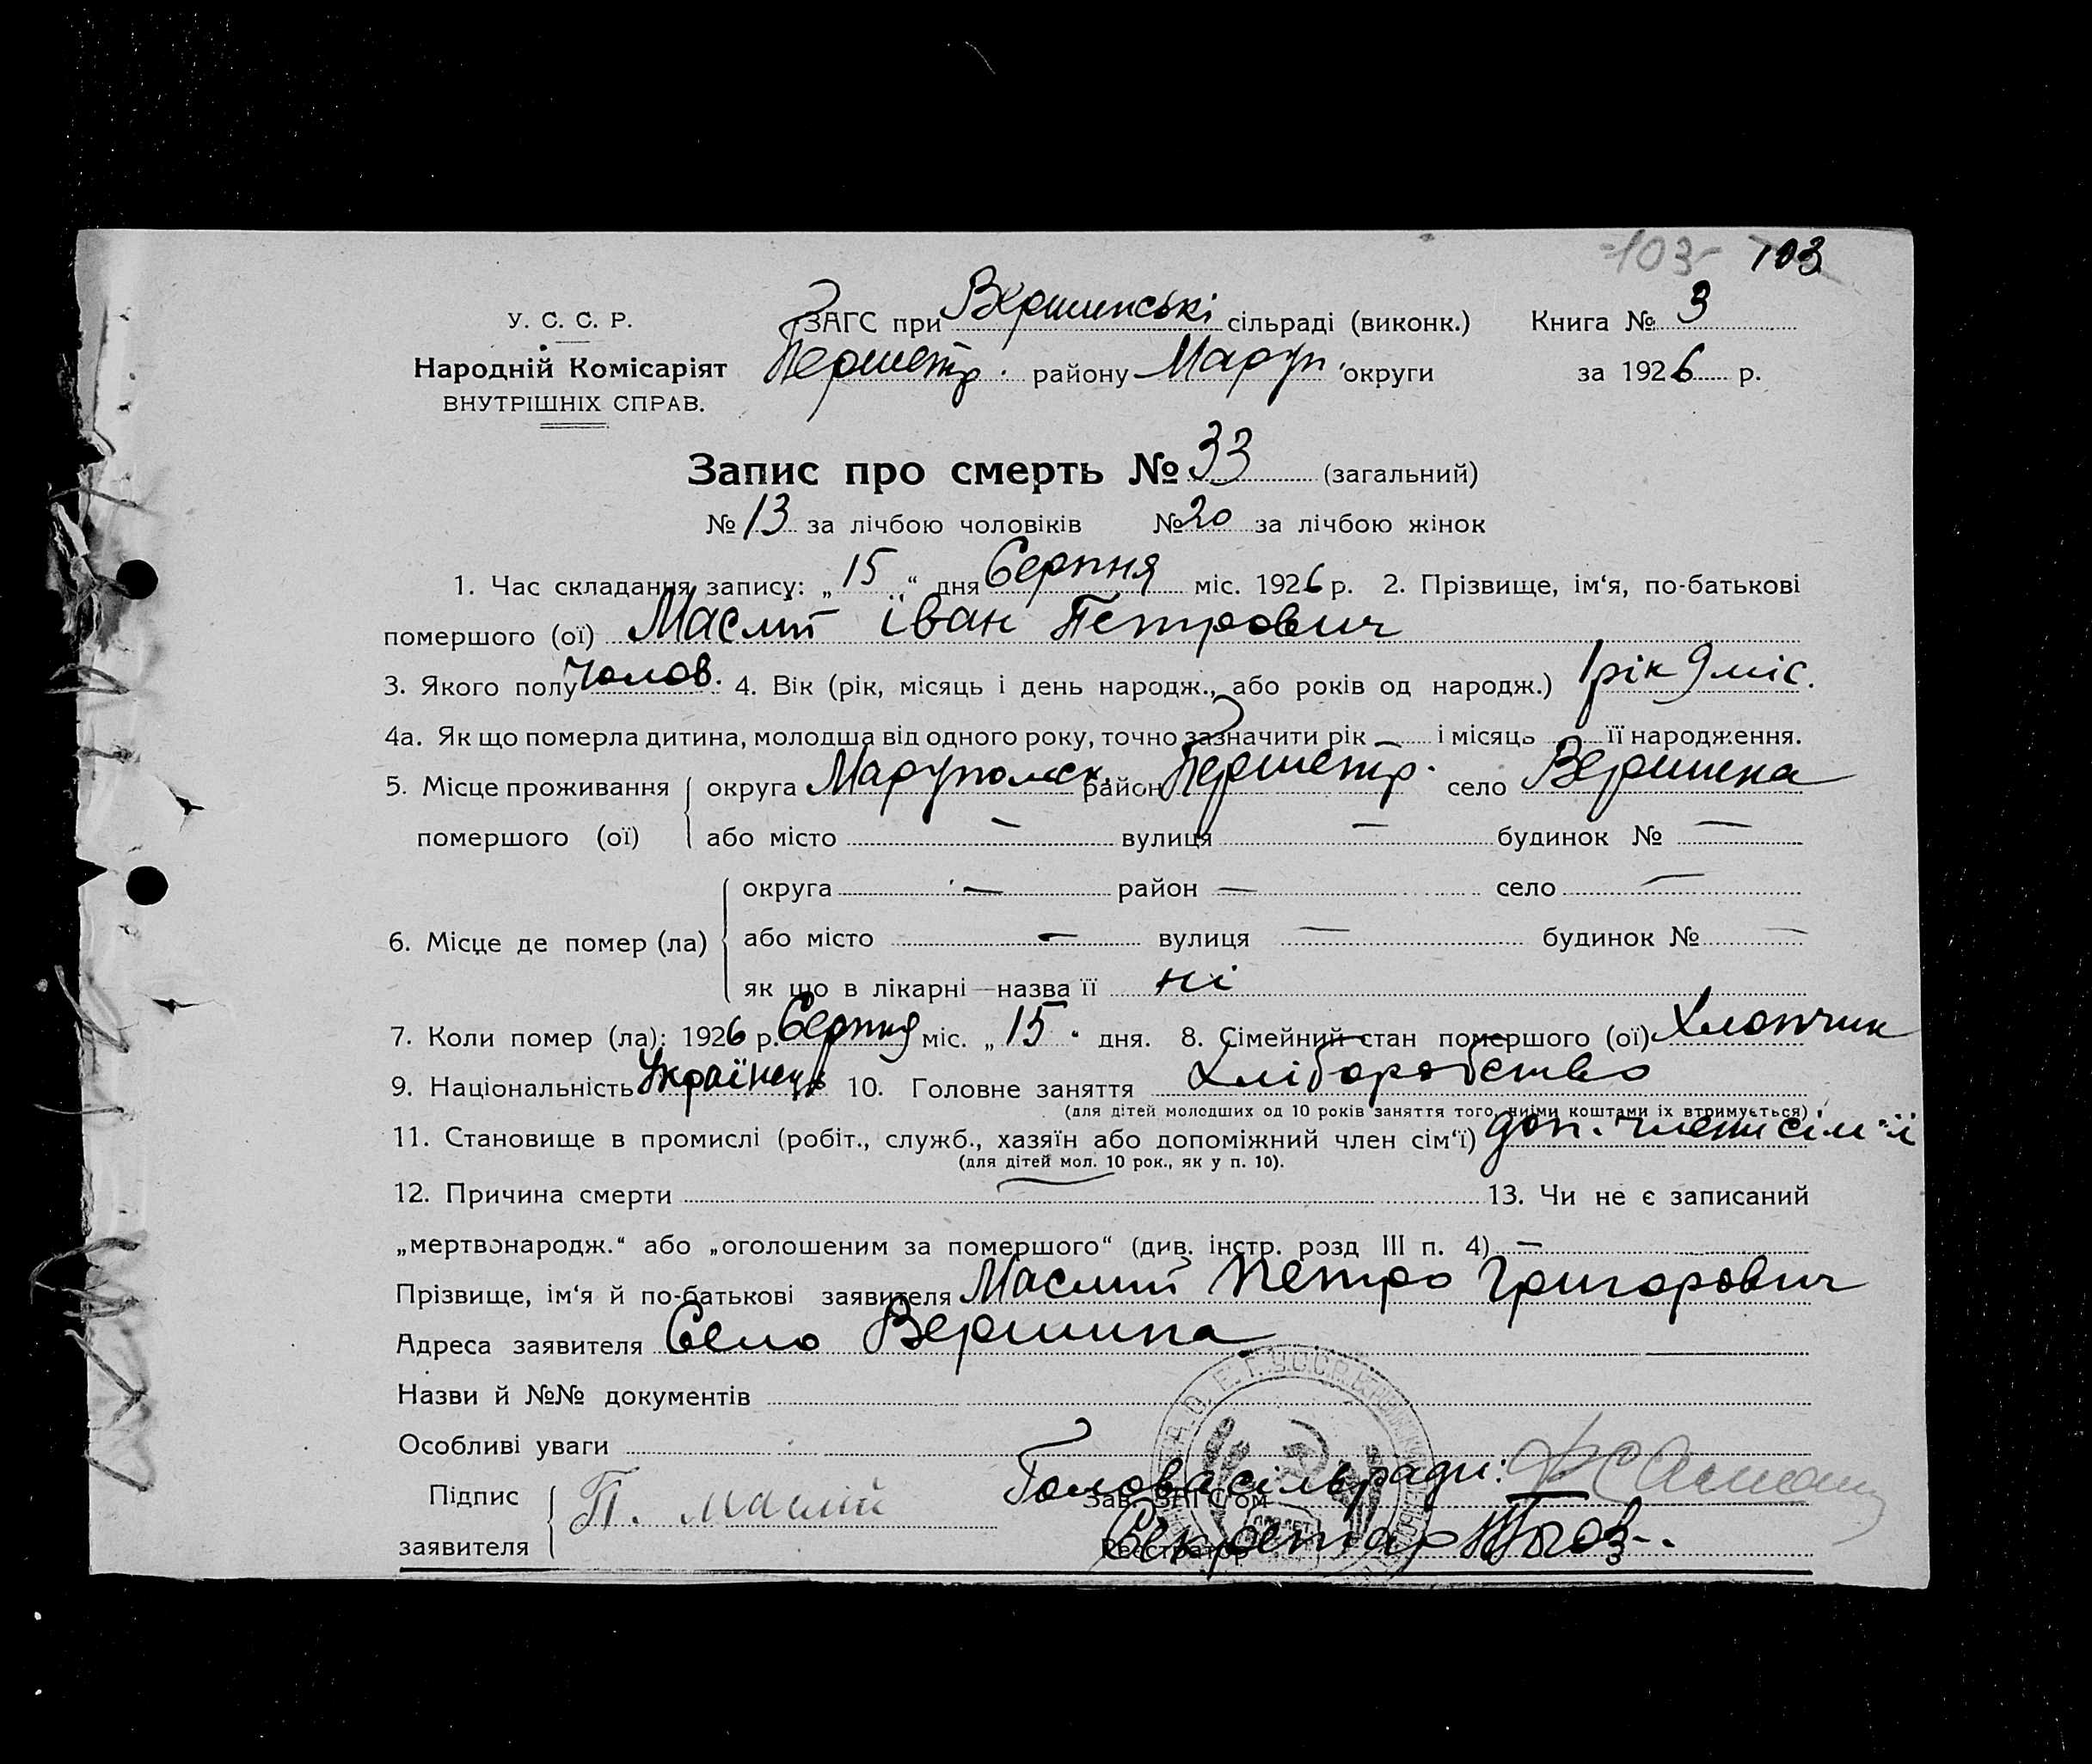 -103- 103
У. С. С. Р.
Народній Комісаріят
ВНУТРІШНІХ СПРАВ.
ЗАГС при Вершинські сільраді (виконк.) Книга № 3
Першетр. району Маруп. округи за 1926 р.
Запис про смерть № 33 (загальний)
№ 13 за лічбою чоловіків № 20 за лічбою жінок
1. Час складання запису: „15“ дня Серпня міс. 1926 р. 2. Прізвище, ім‘я, по-батькові
помершого (ої) Маслий іван Петрович
3. Якого полу чолов. 4. Вік (рік, місяць і день народж., або років од народж.) 1 рік 9 міс.
4а. Як що померла дитина, молодша від одного року, точно зазначити рік — і місяць її народження.
5. Місце проживання округа Маруполск. район Першетр. село Вершена
помершого (ої) або місто — вулиця — будинок № —
округа — район — село —
6. Місце де помер (ла) або місто — вулиця — будинок № —
як що в лікарні — назва її ні
7. Коли помер (ла): 1926 р. Серпня міс. „15“ дня. 8. Сімейний стан помершого (ої) Хлопчик
9. Національність Українець 10. Головне заняття Хліборобство
(для дітей молодших од 10 років заняття того, чиїми коштами їх втримується)
11. Становище в промислі (робіт., служб., хазяїн або допоміжний член сім‘ї) доп. член сім'ї
(для дітей мол. 10 рок., як у п. 10).
12. Причина смерти 13. Чи не є записаний
„мертвонародж.“ або „оголошеним за помершого“ (див. інстр. розд III п. 4) —
Прізвище, ім‘я й по-батькові заявителя Маслий Петро Григорович
Адреса заявителя Село Вершина
Назви й №№ документів
Особливі уваги
Підпис заявителя П. маслій
Голова сільради:
Зав. ЗАГС‘ом
Секретар
Реєстратор